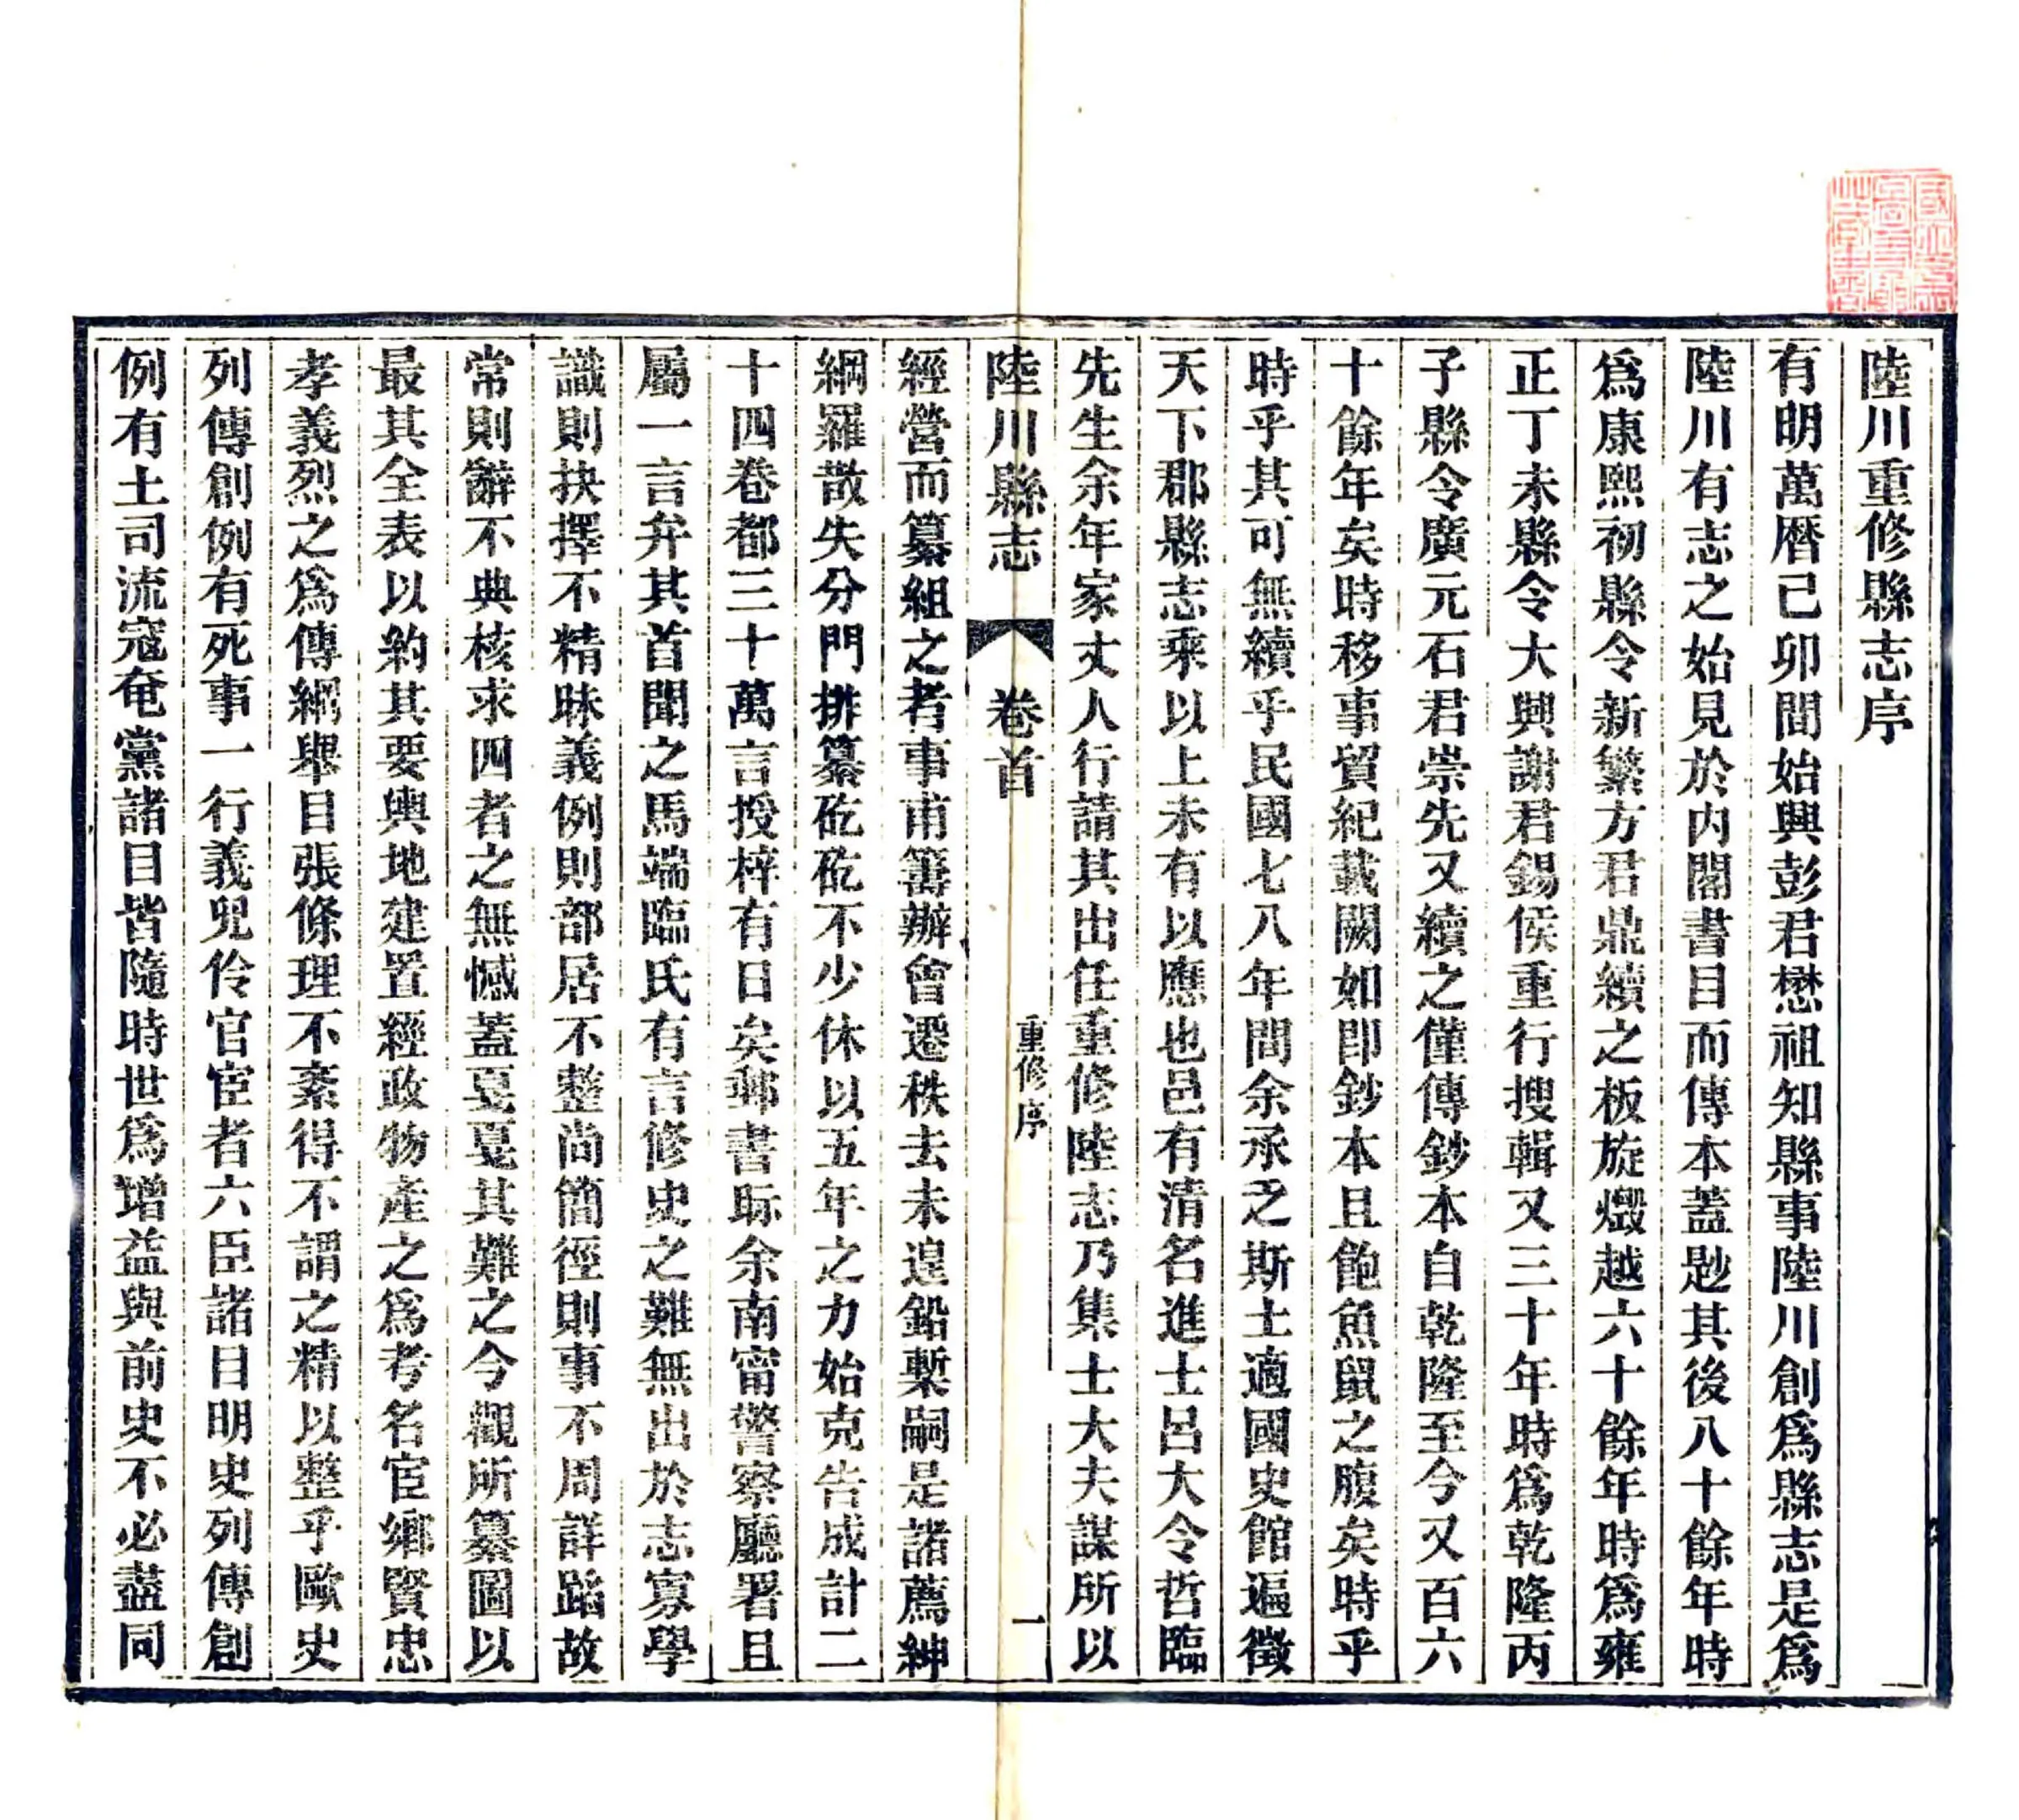 陸川重修縣志序
有明萬曆己卯間始興彭君懋祖知縣事陸川創爲縣志是爲
陸川有志之始見於内閣書目而傳本蓋尟其後八十餘年時
爲康熙初縣令新繁方君鼎續之板旋燬越六十餘年時爲雍
正丁未縣令大興謝君錫侯重行搜輯又三十年時爲乾隆丙
子縣令廣元石君崇先又續之僅傳鈔本自乾隆至今又百六
十餘年矣時移事貿紀載闕如即鈔本且飽魚鼠之腹矣時乎
時乎其可無續乎民國七八年間余承乏斯土適國史館遍徵
天下郡縣志乘以上未有以應也邑有清名進士呂大令哲臨
先生余年家丈人行請其出任重修陸志乃集士大夫謀所以
陸川縣志 卷首 重修序 一
經營而纂組之者事甫籌辦會遷秩去未遑鉛槧嗣是諸薦紳
網羅散失分門排纂矻矻不少休以五年之力始克告成計二
十四卷都三十萬言授梓有日矣郵書眎余南甯警察廳署且
屬一言弁其首聞之馬端臨氏有言修史之難無出於志寡學
識則抉擇不精昧義例則部居不整尚簡徑則事不周詳蹈故
常則辭不典核求四者之無憾蓋戛戛其難之今觀所纂圖以
最其全表以約其要輿地建置經政物產之爲考名宦鄉賢忠
孝義烈之爲傳綱舉目張條理不紊得不謂之精以整乎歐史
列傳創例有死事一行義兒伶官宦者六臣諸目明史列傳創
例有土司流寇奄黨諸目皆隨時世爲增益與前史不必盡同